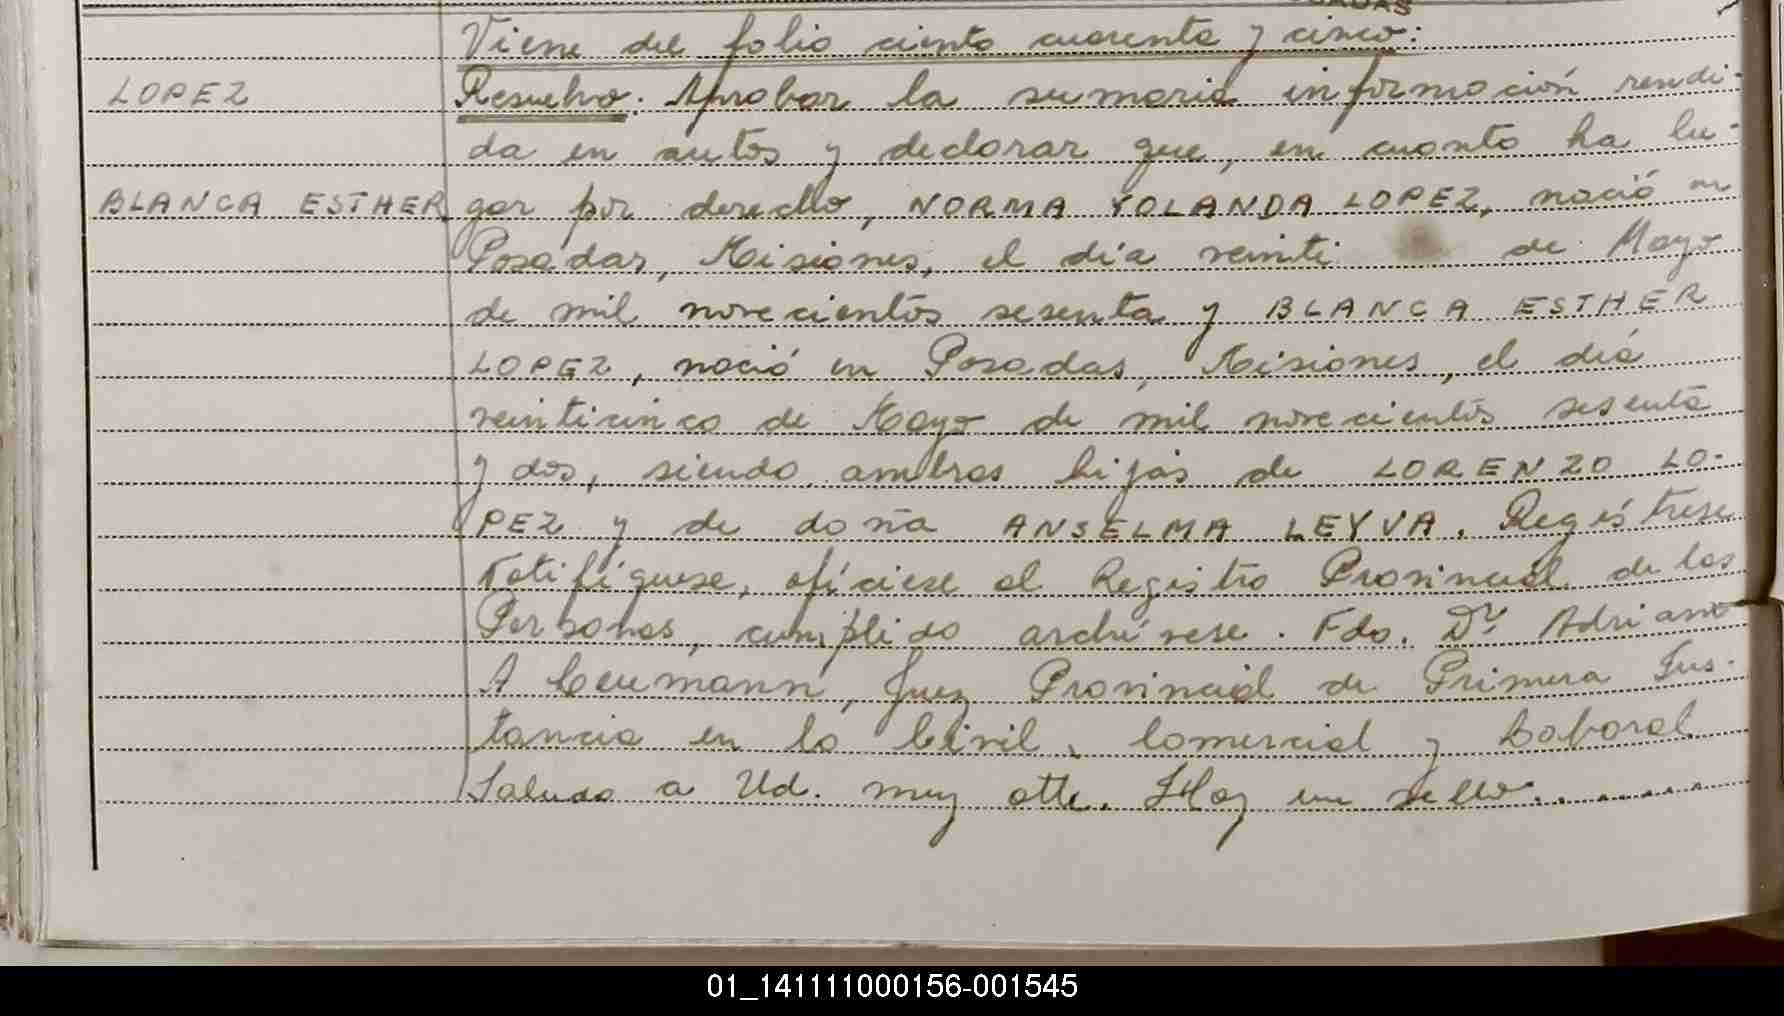 Viene del folio ciento cuarenta y cinco:
LOPEZ
Resuelvo: Aprobar la sumaria información rendi-
da en autos y declarar que, en cuanto ha lu-
BLANCA ESTHER
gar por derecho, NORMA YOLANDA LOPEZ, nació en
Posadas, Misiones, el día veinti de Mayo
de mil novecientos sesenta y BLANCA ESTHER
LOPEZ, nació en Posadas, Misiones, el día
veinticinco de Mayo de mil novecientos sesenta
y dos, siendo ambas hijas de LORENZO LO-
PEZ y de doña ANSELMA LEYVA. Regístrese
Notifíquese, ofíciese al Registro Provincial de las
Personas, cumplido archívese. Fdo. Dr. Adriano
A Juez Provincial de Primera Ins-
tancia en lo Civil, Comercial y Laboral
Saludo a Ud. muy atte. Hay un sello.........
01_141111000156-001545